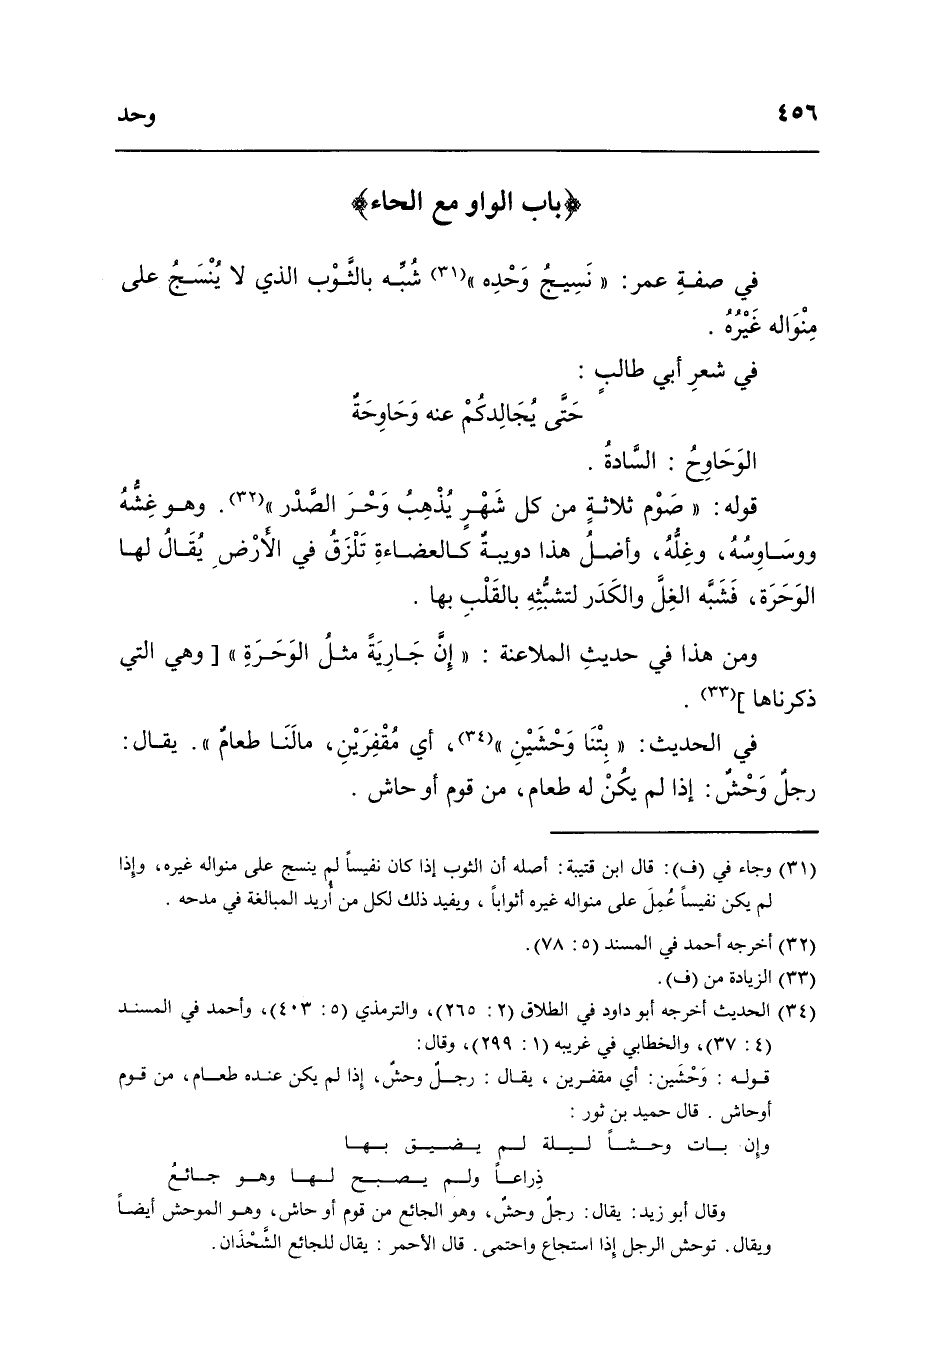 ٤٥٦ وحد
﴿باب الواو مع الحاء﴾
في صفةِ عمر: « نَسِيجُ وَحْدِه »(٣١) شُبِّه بالثَّوْب الذي لا يُنْسَجُ على
مِنْوَاله غَيْرُهُ .
في شعرِ أبي طالبٍ :
حَتَّى يُجَالِدكُمْ عنه وَحَاوِحَةٌ
الوَحَاوِحُ : السَّادةُ .
قوله: « صَوْم ثلاثةٍ من كل شَهْرٍ يُذْهِبُ وَحْرَ الصَّدْر »(٣٢). وهو غِشُّهُ
ووسَاوِسُهُ، وغِلُّهُ، وأصلُ هذا دويبةٌ كالعضاءةِ تَلْزَقُ في الأَرْضِ يُقَالُ لها
الوَحَرَة، فَشَبَّه الغِلَّ والكَدَر لتشبُّثِهِ بالقَلْبِ بها .
ومن هذا في حديثِ الملاعنة : « إنَّ جَارِيَةً مثلُ الوَحَرَةِ » [ وهي التي
ذكرناها ](٣٣) .
في الحديث: « بِتْنَا وَحْشَيْنِ »(٣٤)، أي مُقْفِرَيْنِ، مالَنَا طعامٌ ». يقال:
رجلٌ وَحْشٌ: إذا لم يكُنْ له طعام، من قوم أوحاش .
(٣١) وجاء في (ف): قال ابن قتيبة: أصله أن الثوب إذا كان نفيساً لم ينسج على منواله غيره، وإذا
لم يكن نفيساً عُمِلَ على منواله غيره أثواباً ، ويفيد ذلك لكل من أُريد المبالغة في مدحه .
(٣٢) أخرجه أحمد في المسند (٥ : ٧٨).
(٣٣) الزيادة من (ف).
(٣٤) الحديث أخرجه أبو داود في الطلاق (٢ : ٢٦٥)، والترمذي (٥ : ٤٠٣)، وأحمد في المسند
(٤ : ٣٧)، والخطابي في غريبه (١ : ٢٩٩)، وقال:
قوله : وَحْشَين: أي مقفرين ، يقال : رجلٌ وحشٌ، إذا لم يكن عنده طعام، من قوم
أوحاش . قال حميد بن ثور :
وإن بات وحشاً ليلة لم يضيق بها
ذِراعاً ولم يصبح لها وهو جائعُ
وقال أبو زيد: يقال: رجلٌ وحشٌ، وهو الجائع من قوم أوحاش، وهو الموحش أيضاً
ويقال. توحش الرجل إذا استجاع واحتمى. قال الأحمر : يقال للجائع الشَّحْذَان.